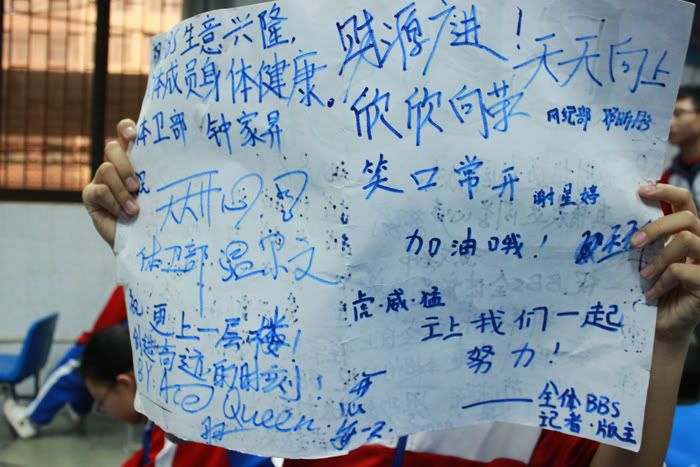 BBS生意兴隆,
体成员身体健康。
体卫部 钟家昇
祝
天天开心
体卫部 温宗文
祝:更上一层楼!
创造奇迹的时刻!
BY. Queen
财源广进!
欣欣向荣
天天向上
网纪部
笑口常开 谢星婷
加油哦!
虎.威.猛
让我们一起
努力!
开心每一天
——全体BBS
记者.版主